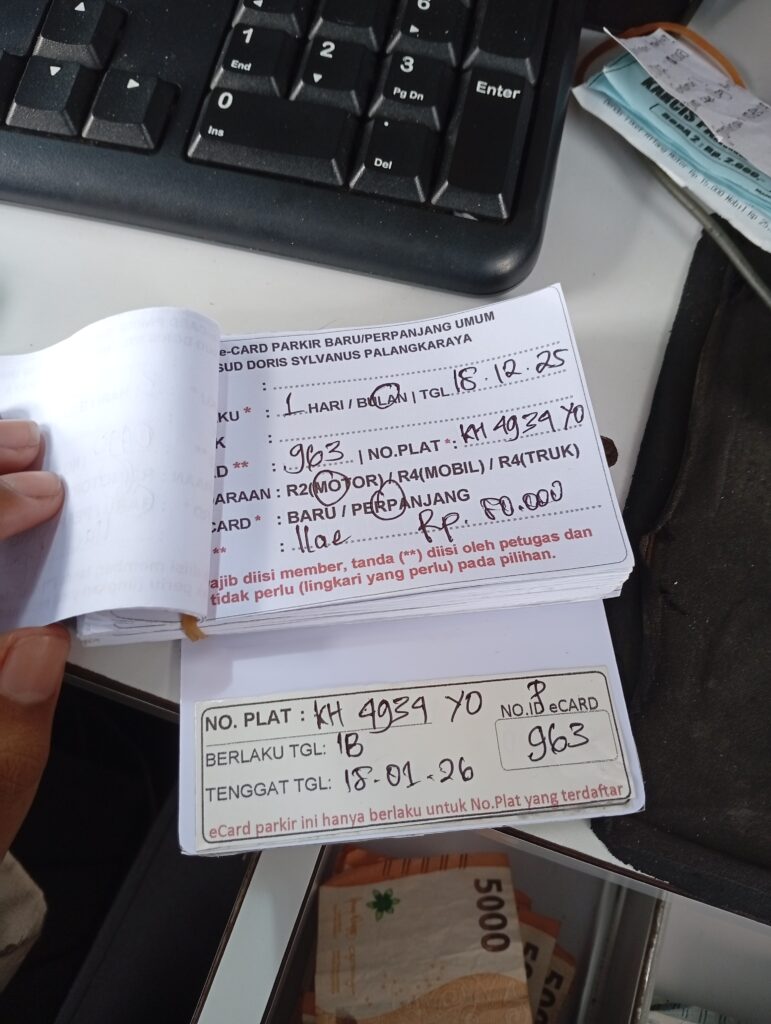 1
End
2
3
Pg Dn
Enter
0
Ins
Del
e-CARD PARKIR BARU/PERPANJANG UMUM
SUD DORIS SYLVANUS PALANGKARAYA
:
KU * : 1 HARI / BULAN | TGL 18.12.25
K :
D ** : 963 | NO.PLAT * : KH 4934 YO
ARAAN : R2(MOTOR) / R4(MOBIL) / R4(TRUK)
CARD * : BARU / PERPANJANG
** : Rp. 80.000
ajib diisi member, tanda (**) diisi oleh petugas dan
tidak perlu (lingkari yang perlu) pada pilihan.
NO. PLAT : KH 4934 YO
NO.ID eCARD
BERLAKU TGL: 1B
963
TENGGAT TGL: 18-01-26
eCard parkir ini hanya berlaku untuk No.Plat yang terdaftar
5000